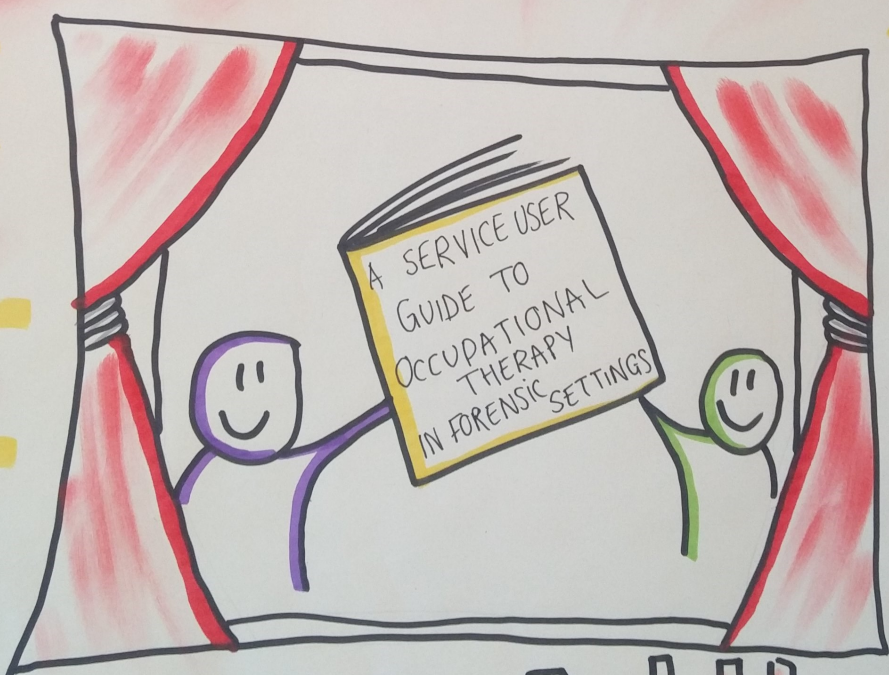 A SERVICE USER
GUIDE TO
OCCUPATIONAL
THERAPY
IN FORENSIC SETTINGS